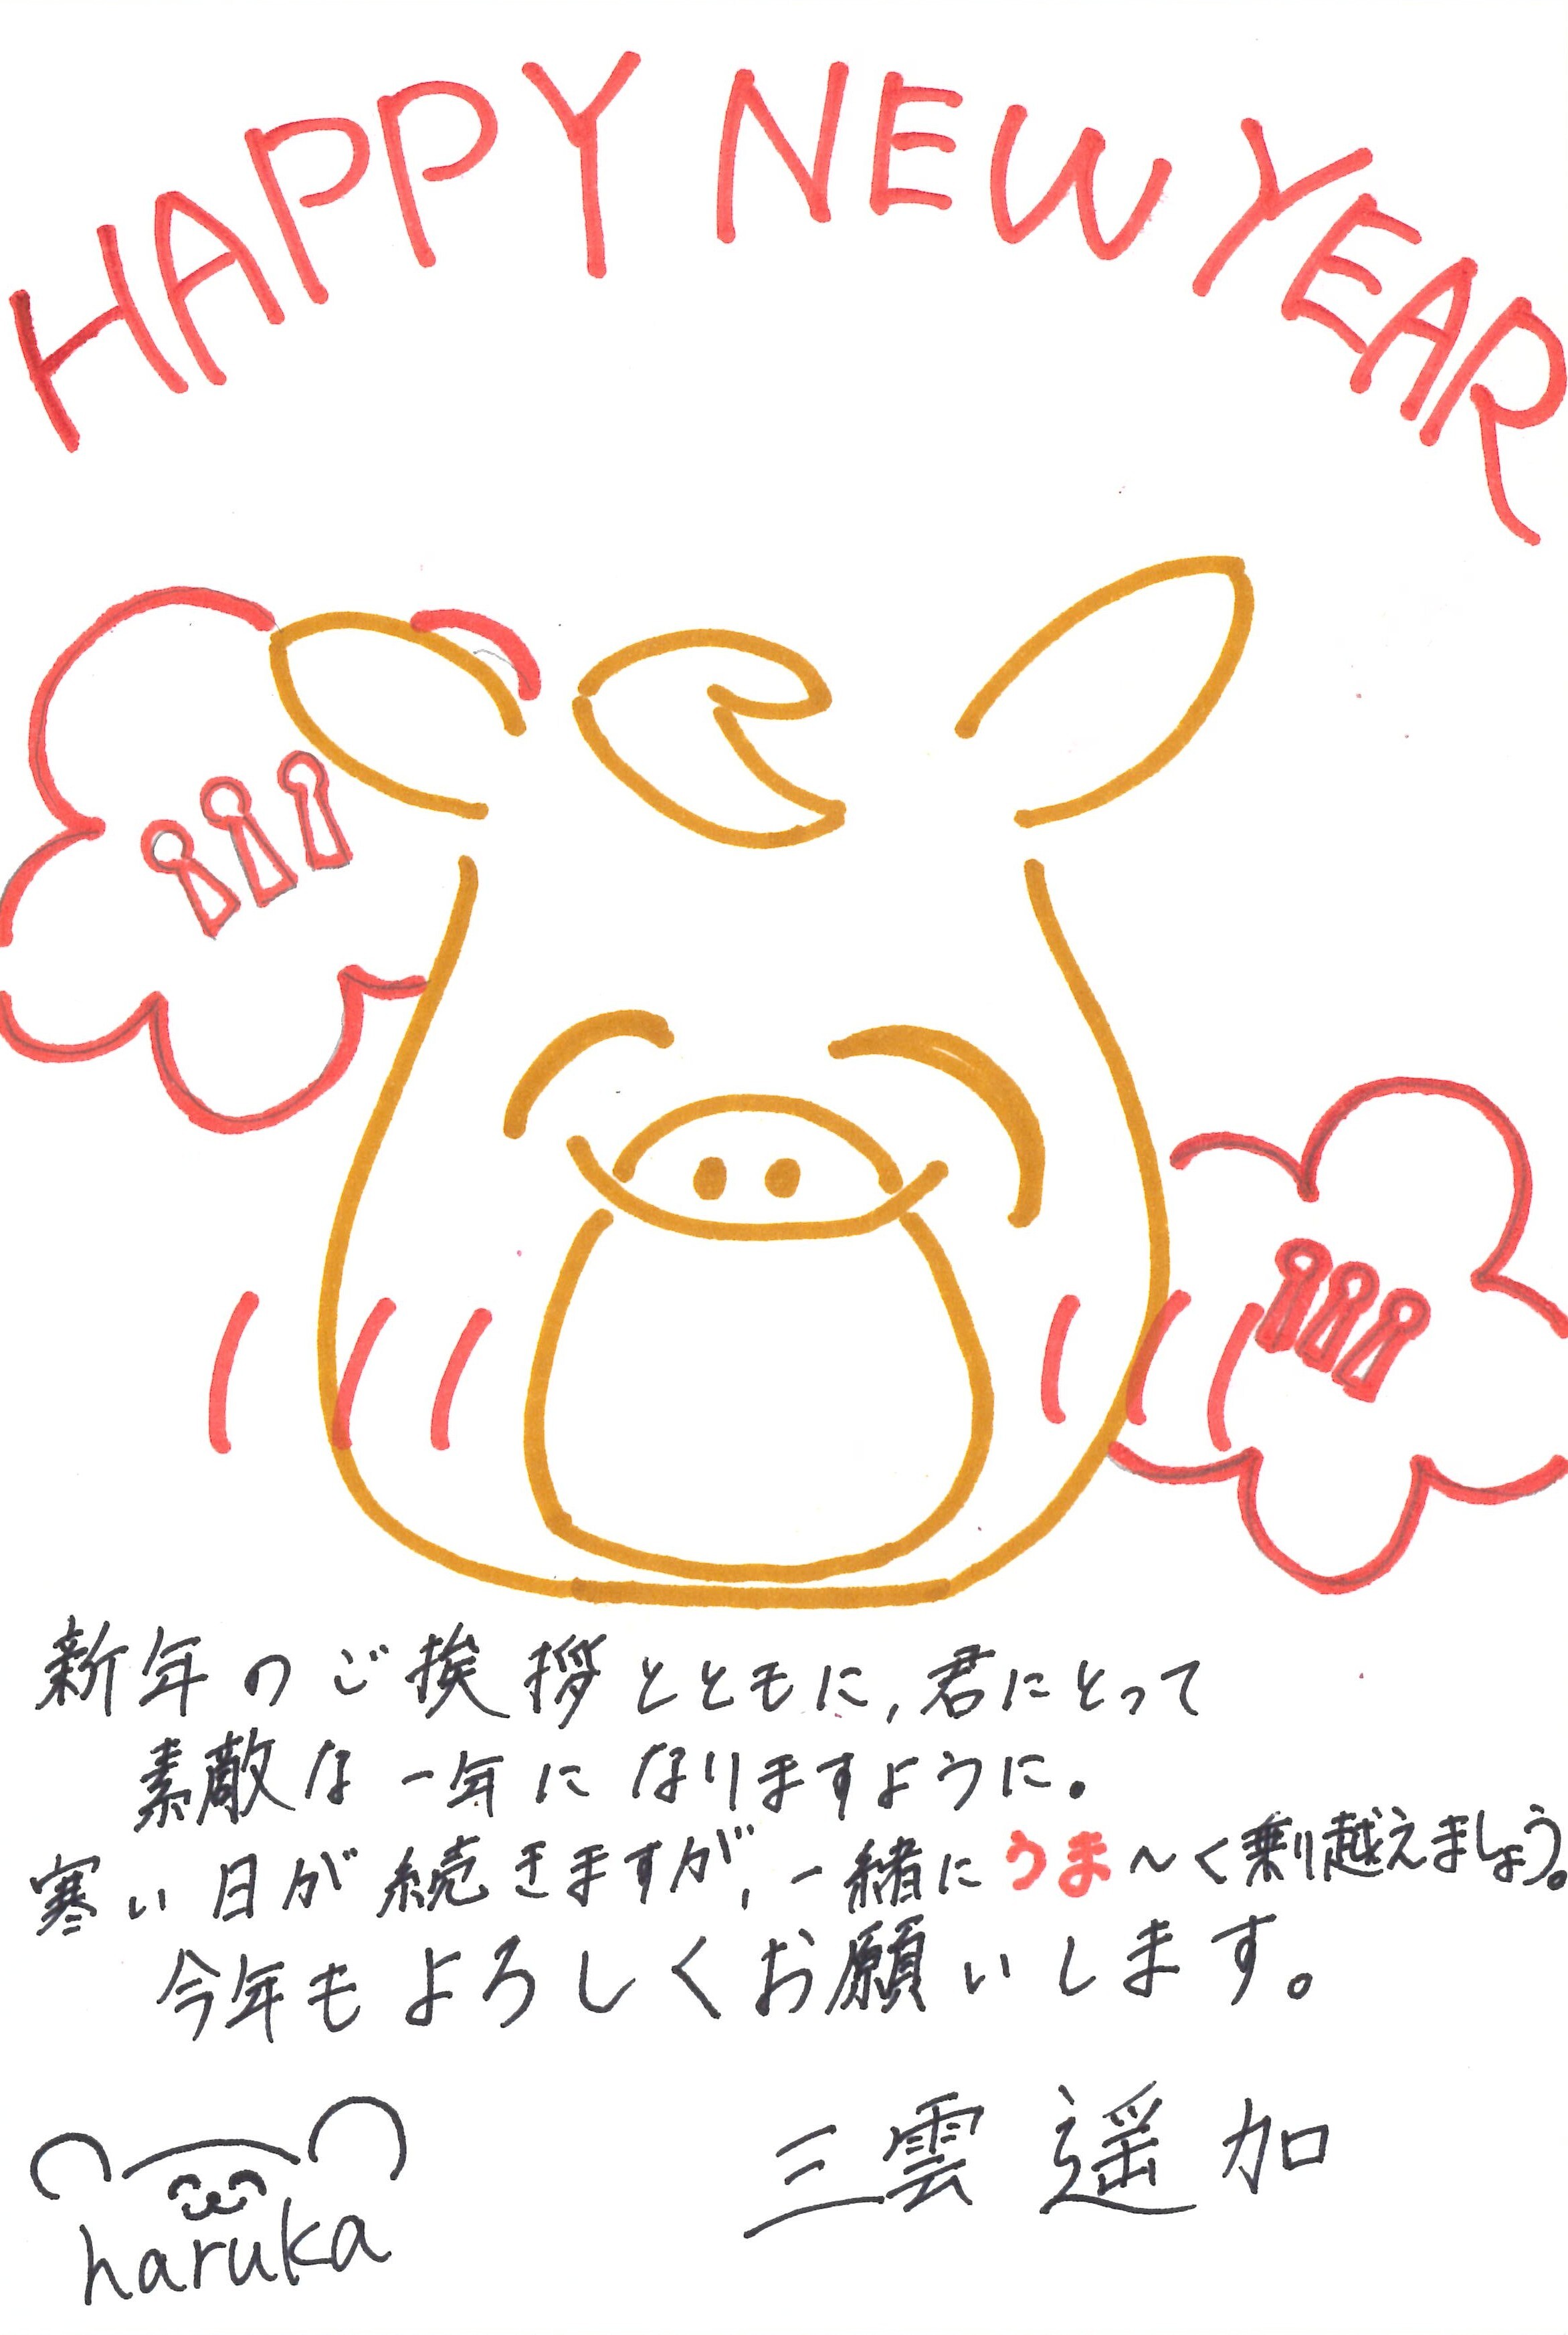 HAPPY NEW YEAR
新年のご挨拶とともに、君にとって
素敵な一年になりますように。
寒い日が続きますが、一緒にうま〜く乗り越えましょう。
今年もよろしくお願いします。
三雲遥加
haruka